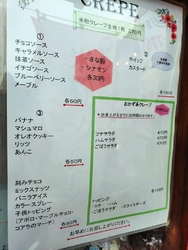 CREPE
米粉クレープ生地1枚 270円
①
チョコソース
キャラメルソース
抹茶ソース
イチゴソース
ブルーベリーソース
メープル
各50円
・きな粉
・シナモン
各30円
②
ホイップ
カスタード
③
バナナ
マシュマロ
オレオクッキー
リッツ
あんこ
おかず系クレープ
ツナサラダ
ハムサラダ
ごぼうサラダ
刻みチョコ
ミックスナッツ
バニラアイス
カラースプレー
子供トッピング
(アポロ・マーブルチョコ・
コアラのマーチ)
トッピング
・ツナ ・ハム
・ごぼうサラダ ・スライスチーズ